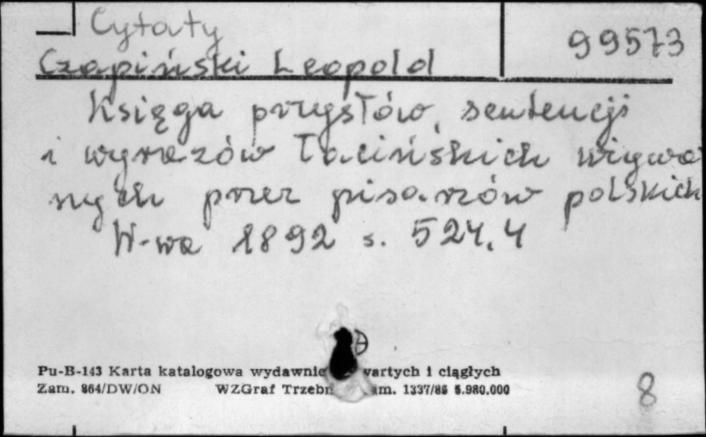 Cytaty
99573
Czapiński Leopold
Księga przysłów, sentencji
i wyrazów łacińskich używa
nych przez pisarzów polskich
W-wa 1892 s. 524, 4
Pu-B-143 Karta katalogowa wydawnic wartych i ciągłych
Zam. 864/DW/ON WZGraf Trzebn am. 1337/86 5.980.000
8